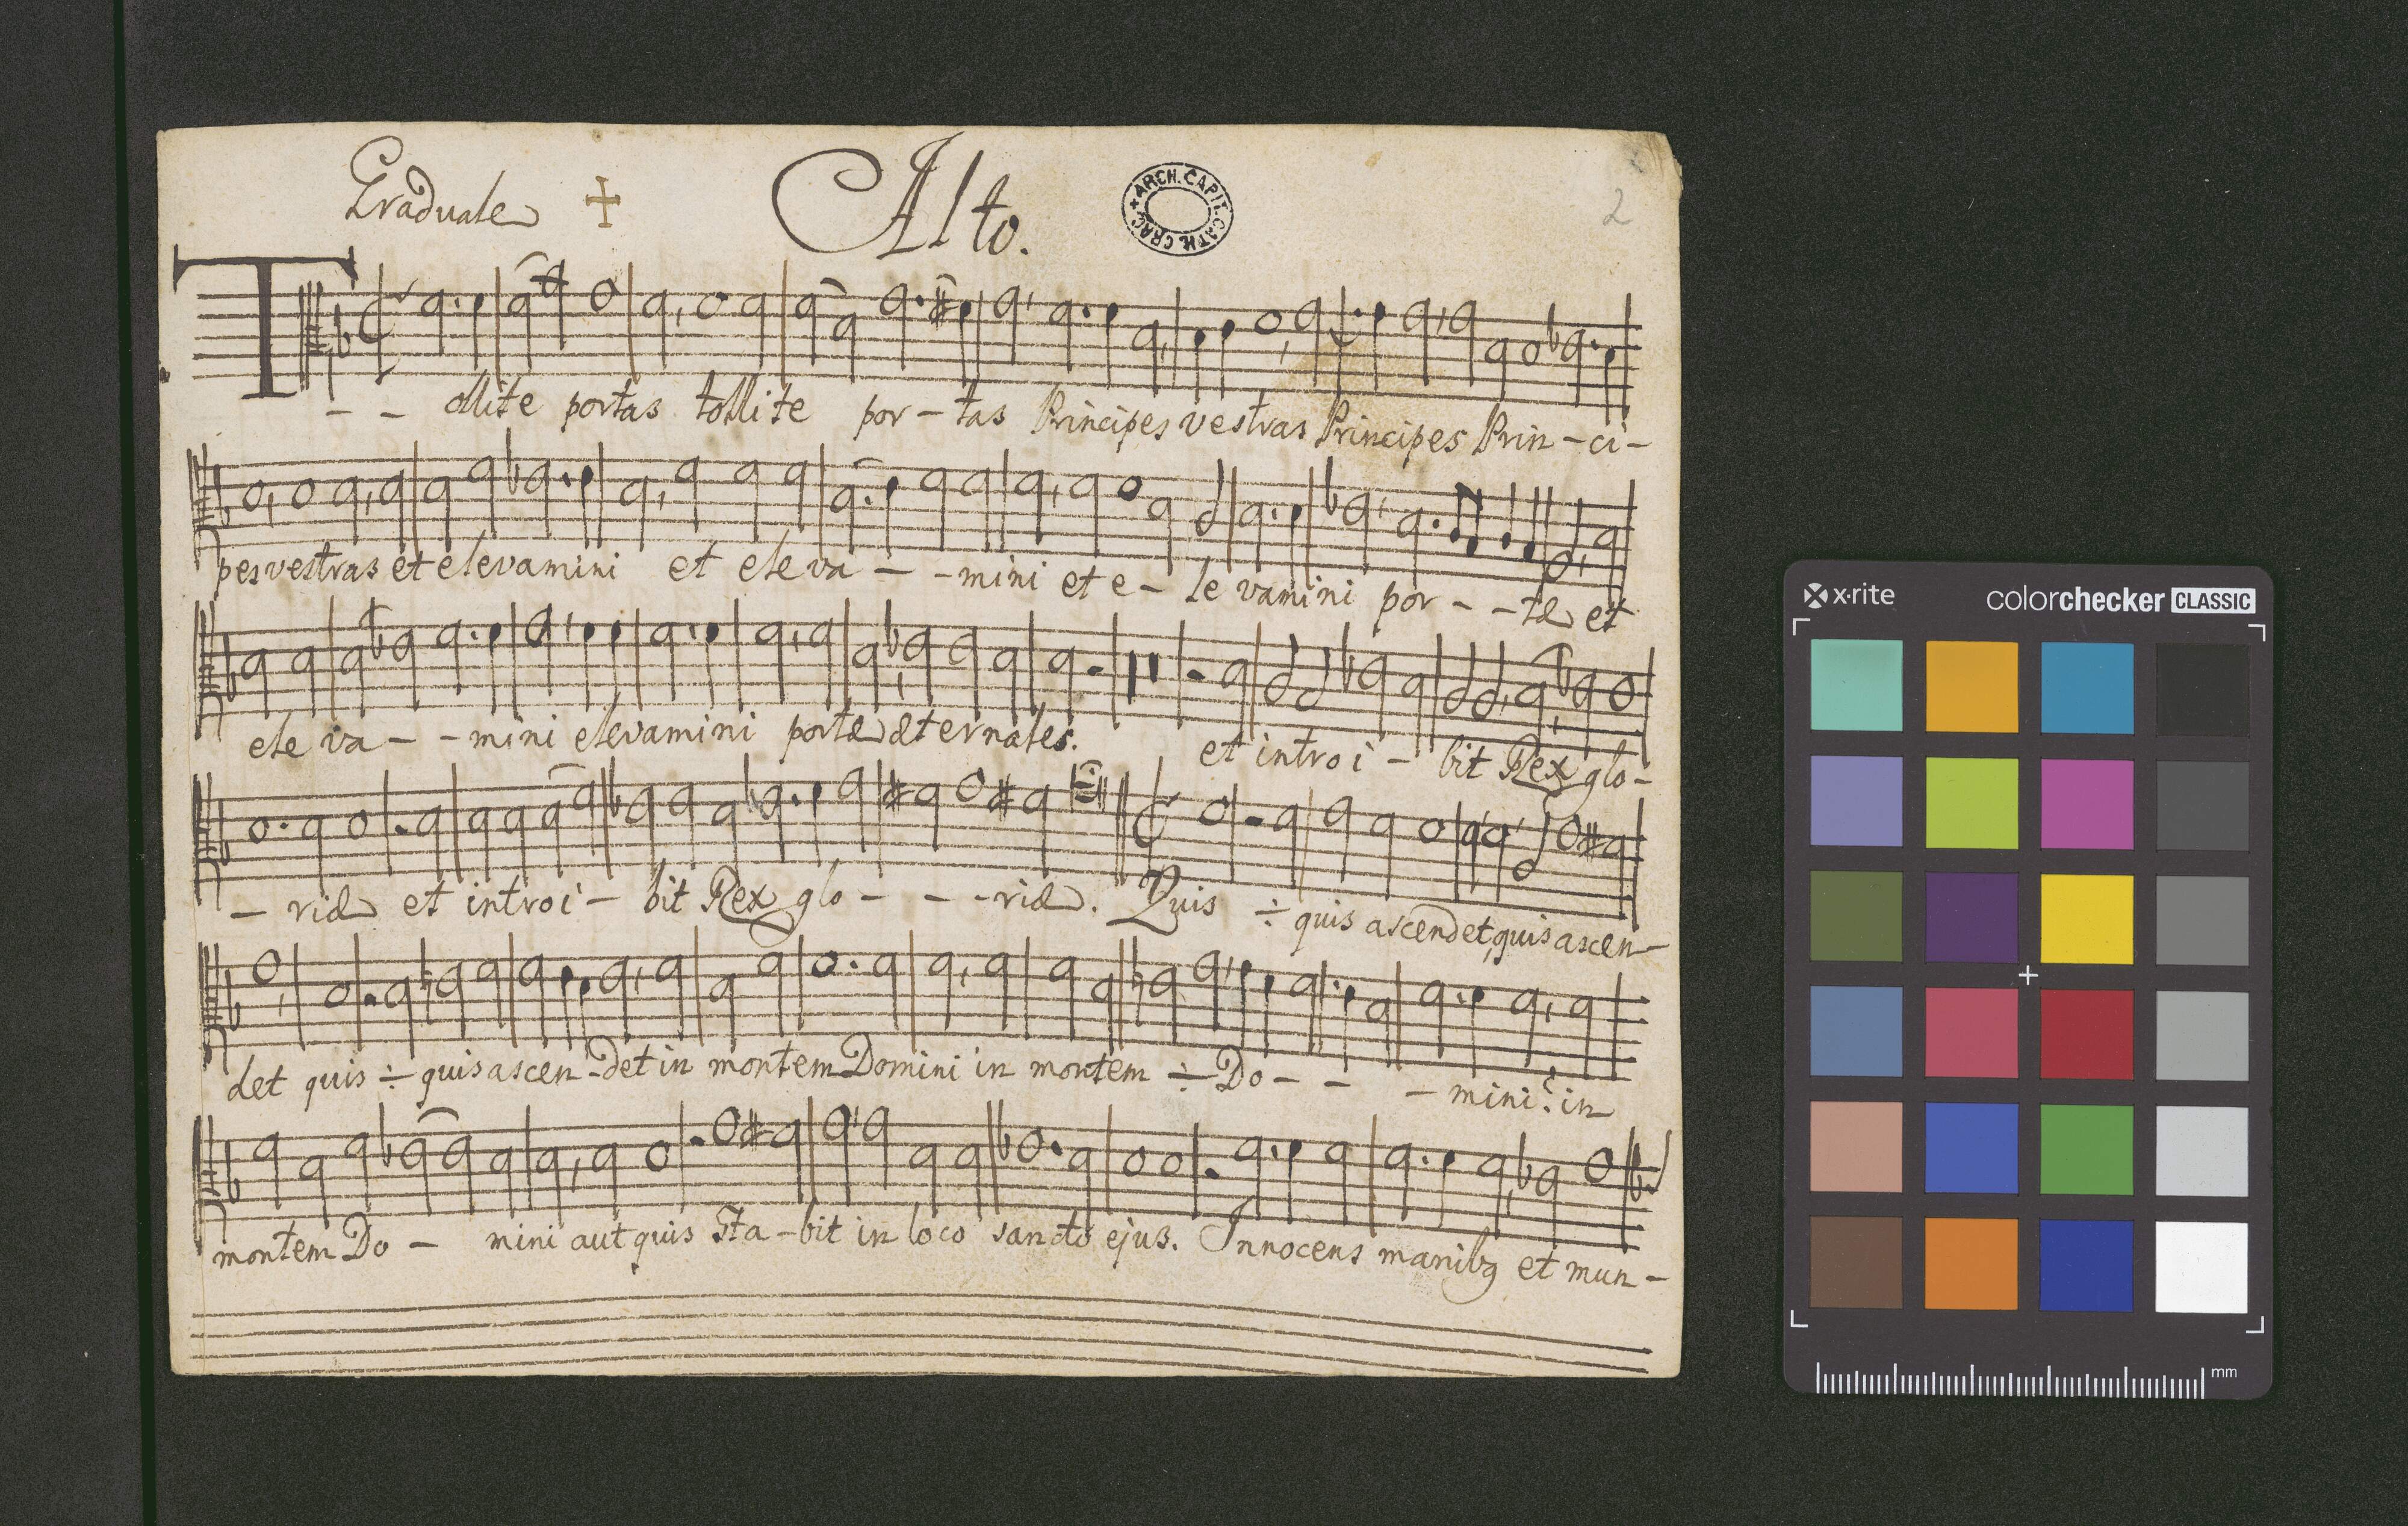 Graduale + Alto.
ARCH. CAPIT. CATH. CRAC.
2
T - - ollite portas tollite por - tas Principes vestras Principes Prin - ci -
pes vestras et elevamini et eleva - - mini et e - le vamini por - - tæ et
ele va - - mini elevamini portæ æternales. et introi - bit Rex glo -
- riæ et introi - bit Rex glo - - - riæ. Quis ÷ quis ascendet, quis ascen -
det quis ÷ quis ascen - det in montem Domini in montem ÷ Do - - - mini? in
montem Do - mini aut quis Sta - bit in loco sancto ejus. Innocens manibꝫ et mun -
x-rite colorchecker CLASSIC
mm